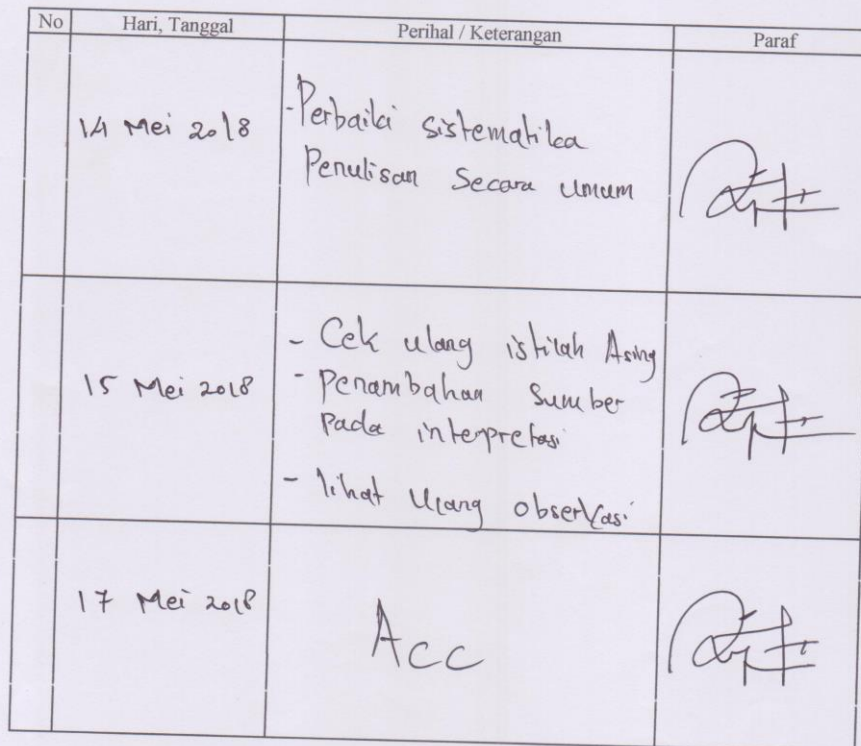 No Hari, Tanggal Perihal / Keterangan Paraf
14 Mei 2018
- Perbaiki sistematika
Penulisan Secara umum
15 Mei 2018
- Cek ulang istilah Asing
- Penambahan Sumber
Pada interpretasi
- lihat Ulang observasi
17 Mei 2018
Acc